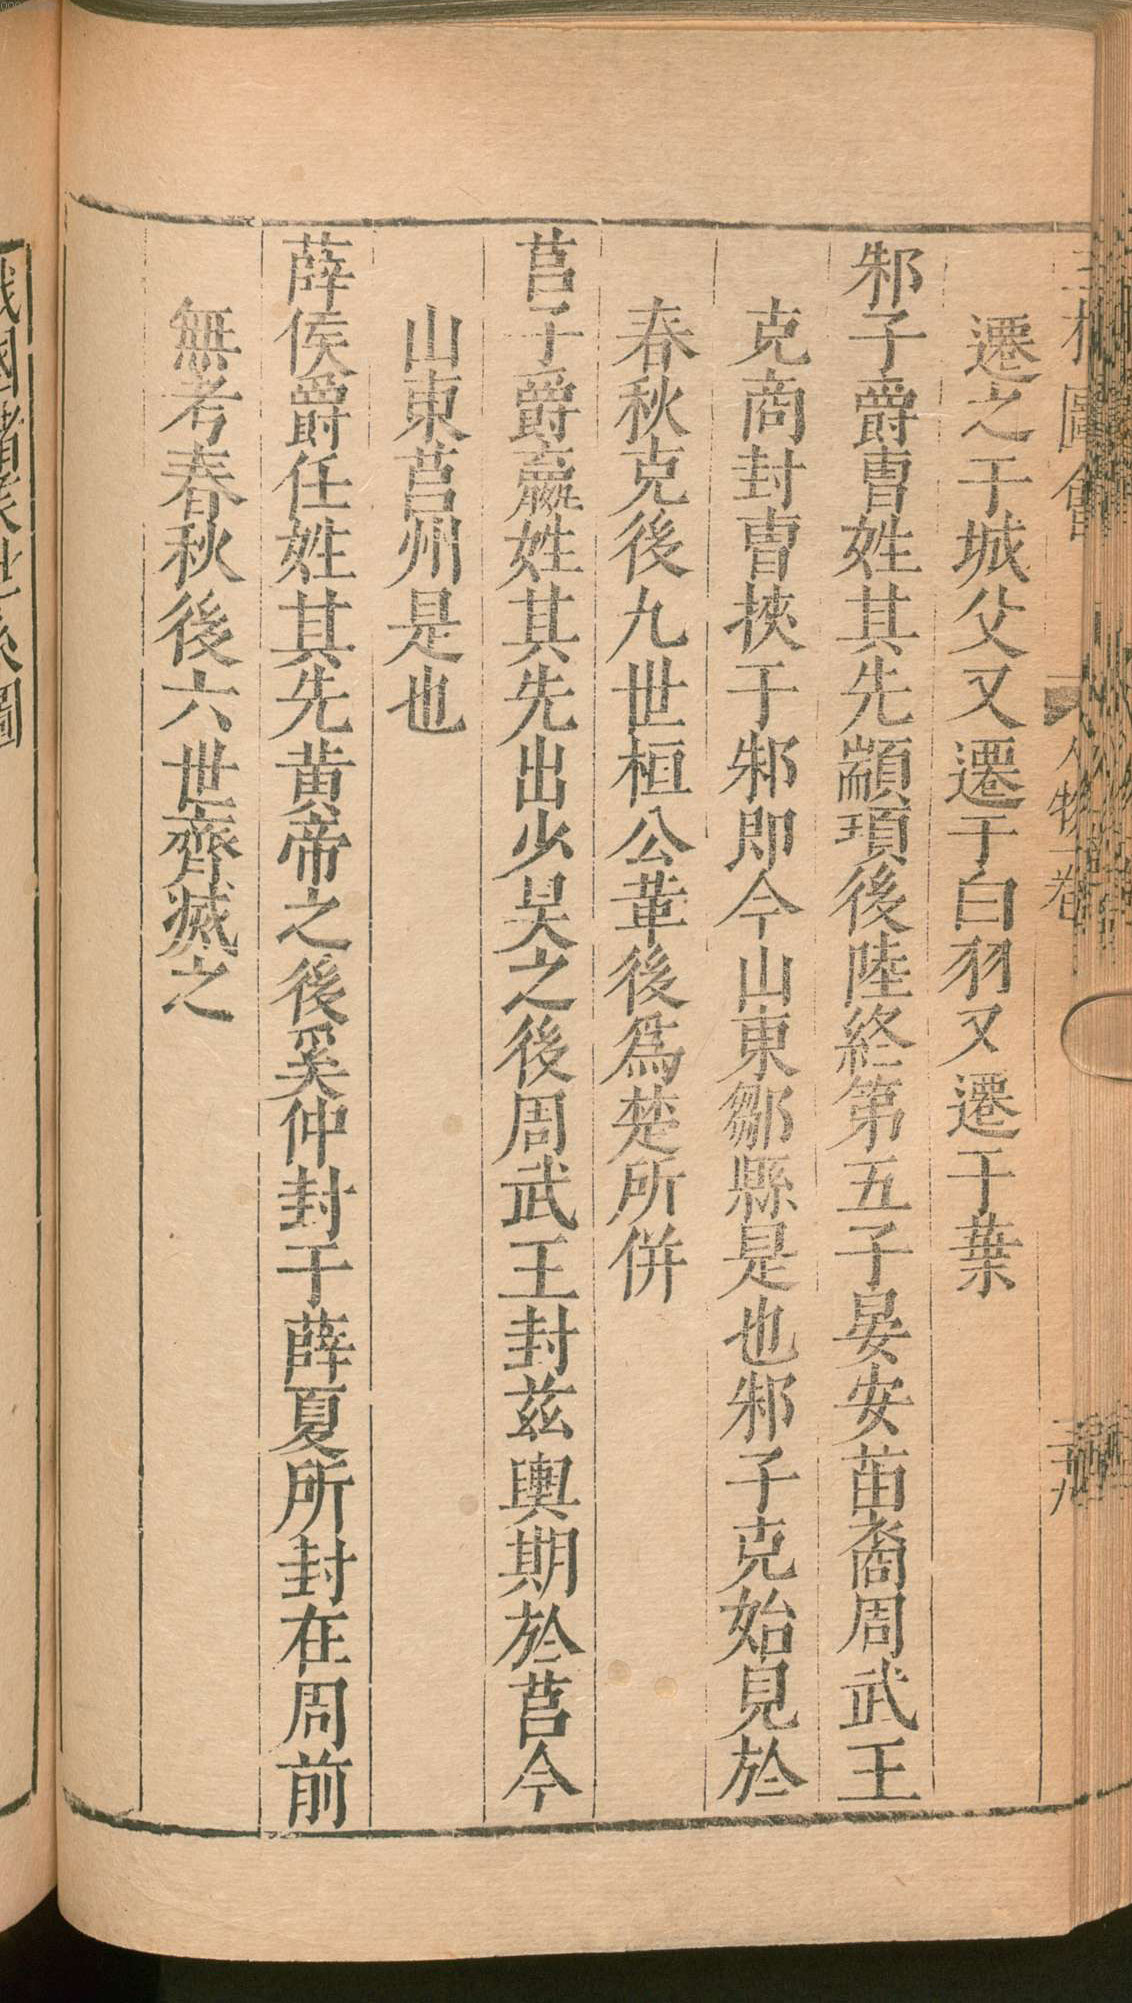 三才圖會 人物一卷
遷之于城父又遷于白羽又遷于葉
邾子爵曹姓其先顓頊後陸終第五子晏安苗裔周武王
克商封曹挾于邾即今山東鄒縣是也邾子克始見於
春秋克後九世桓公革後爲楚所併
莒子爵嬴姓其先出少昊之後周武王封茲輿期於莒今
山東莒州是也
薛侯爵任姓其先黃帝之後奚仲封于薛夏所封在周前
無考春秋後六世齊滅之
戰國諸侯世系圖